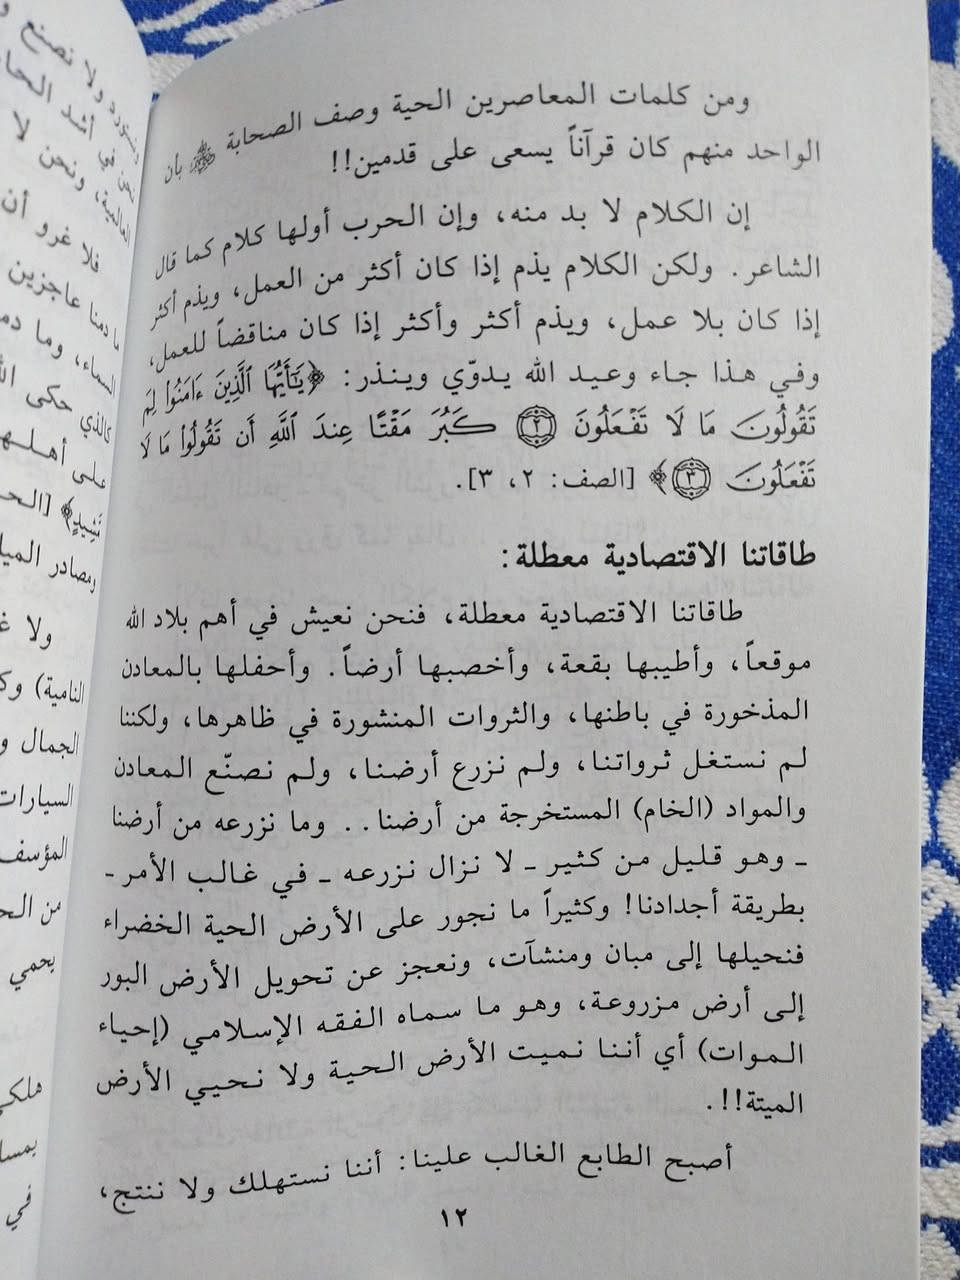 ومن كلمات المعاصرين الحية وصف الصحابة ﷺ بان
الواحد منهم كان قرآناً يسعى على قدمين!!
إن الكلام لا بد منه، وإن الحرب أولها كلام كما قال
الشاعر. ولكن الكلام يذم إذا كان أكثر من العمل، ويذم أكثر
إذا كان بلا عمل، ويذم أكثر وأكثر إذا كان مناقضاً للعمل،
وفي هذا جاء وعيد الله يدوّي وينذر: ﴿يَٰٓأَيُّهَا ٱلَّذِينَ ءَامَنُوا۟ لِمَ
تَقُولُونَ مَا لَا تَفْعَلُونَ ۝٢ كَبُرَ مَقْتًا عِندَ ٱللَّهِ أَن تَقُولُوا۟ مَا لَا
تَفْعَلُونَ ۝٣﴾ [الصف: ٢، ٣].
طاقاتنا الاقتصادية معطلة:
طاقاتنا الاقتصادية معطلة، فنحن نعيش في أهم بلاد الله
موقعاً، وأطيبها بقعة، وأخصبها أرضاً. وأحفلها بالمعادن
المذخورة في باطنها، والثروات المنشورة في ظاهرها، ولكننا
لم نستغل ثرواتنا، ولم نزرع أرضنا، ولم نصنّع المعادن
والمواد (الخام) المستخرجة من أرضنا.. وما نزرعه من أرضنا
ـ وهو قليل من كثير ـ لا نزال نزرعه ـ في غالب الأمر ـ
بطريقة أجدادنا! وكثيراً ما نجور على الأرض الحية الخضراء
فنحيلها إلى مبان ومنشآت، ونعجز عن تحويل الأرض البور
إلى أرض مزروعة، وهو ما سماه الفقه الإسلامي (إحياء
الموات) أي أننا نميت الأرض الحية ولا نحيي الأرض
الميتة!!.
أصبح الطابع الغالب علينا: أننا نستهلك ولا ننتج،
١٢